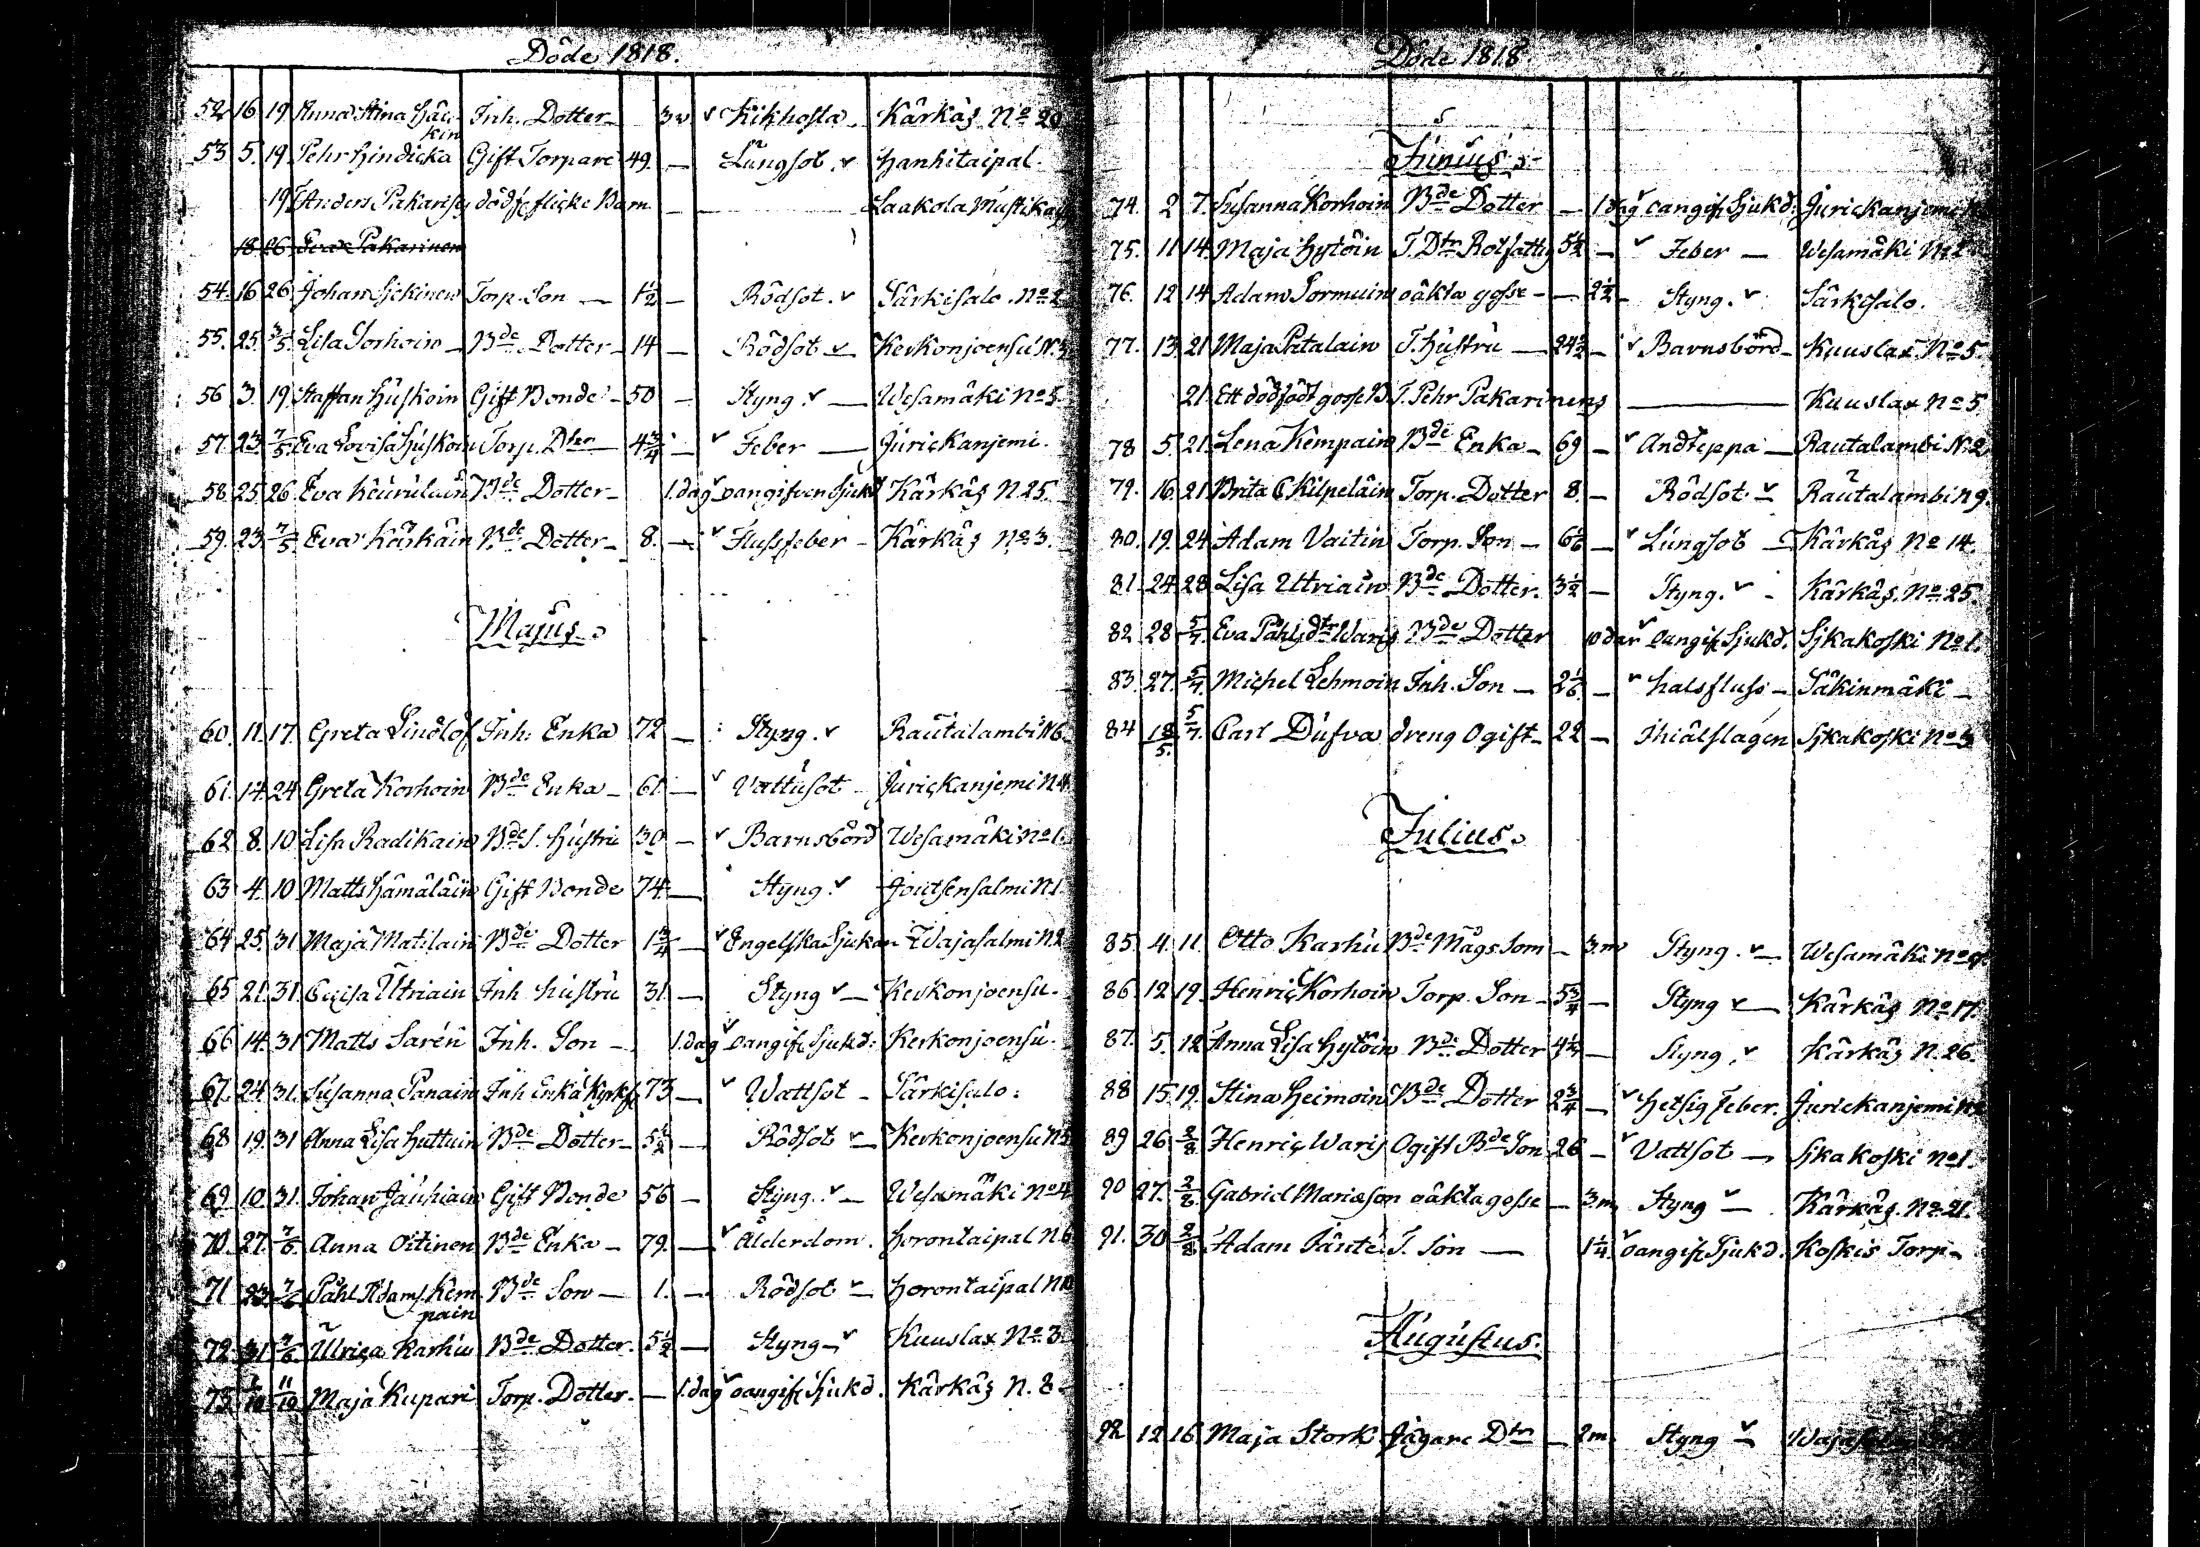 Döde 1818.
52 16 19 Anna Stina Häickin Inh. Dotter 3v Kikhosta Kärkäs No 20
53 5. 19 Pehr Hindicka Gift Torpare 49. — Lungsot. Hankitaipal.
19 Anders Pakarises dödf. flicke Barn — Laakola Mustikas
18 26 Eva Pakarinen
54. 16 26 Johan Sickinen Torp. Son — 1½ — Rödsot. Särkisalo. No 2
55. 25. 3/5 Lisa Korhoin Bde Dotter 14 — Rödsot — Kerkonjoensu N. 3
56 3. 19. Staffan Huskoin Gift Bonde 50 — Styng. — Wesamäki No 5.
57. 23. 7/5 Eva Lovisa Huskoin Torp. Dter 4¾ — Feber — Jurickanjemi.
58. 25. 26. Eva Keurulain Bde Dotter 1. dag oangifven Sjukd Kärkäs N 25.
59. 23. 7/5 Eva Kärkäin Bde Dotter 8. — Flussfeber Kärkäs No 3.
Majus.
60. 11. 17. Greta Lindlöf Inh. Enka 72 — Styng. Rautalambi N 6.
61. 14. 24 Greta Korhoin Bde Enka 61. — Vattusot Jurickanjemi N 4.
62 8. 10 Lisa Radikain Bde S. Hustru 30 — Barnsbörd Wesamäki No 1.
63 4. 10 Matts Hämäläin Gift Bonde 74. — Styng. Joutsensalmi N 1.
64 25. 31 Maja Matilain Bde Dotter 1¾ — Engelska Sjukan Wajasalmi N. 2
65 21. 31. Lovisa Utriain Inh Hustru 31. — Styng — Kerkonjoensu.
66 14. 31 Matts Sarén Inh. Son 1. dag oangif. Sjukd: Kerkonjoensu.
67. 24 31. Susanna Panain Inh Enka Kyrkf. 73 — Wattsot Särkisalo:
68 19. 31 Anna Lisa Huttuin Bde Dotter 5½ — Rödsot — Kerkonjoensu N 5
69 10. 31. Johan Jauhiain Gift Bonde 56 — Styng. — Wesamäki No 4
70. 27. 7/6 Anna Oitinen Bde Enka 79. — Ålderdom. Horontaipal N 6
71 23. 7/6 Påhl Adams. Kempain Bde Son — 1. — Rödsot — Horontaipal N 10
72. 31. 7/6 Ulrica Karhu Bde Dotter. 5½ — Styng Kuuslax No 3.
73. 7/10 11/10 Maja Kupari Torp. Dotter. — 1. dag oangif. Sjukd. Kärkäs N. 8
Döde 1818.
Junius.
74. 2 7. Susanna Korhoin Bde Dotter — 1 dag oangif. Sjukd. Jurickanjemi
75. 11 14. Maja Hytöin T. Dtr Rotfattig 5½ — Feber — Wesamäki No 2
76. 12 14 Adam Tormuin oäkta gosse — 2½ Styng. Särkisalo.
77. 13. 21 Maja Patalain T. Hustru — 24½ — Barnsbörd Kuuslax No 5.
21. Ett dödfödt gosse B T. Pehr Pakarinens — Kuuslax No 5
78 5. 21. Lena Kempain Bde Enka 69 — Andteppa — Rautalambi N. 2.
79. 16. 21 Brita C Kilpeläin Torp. Dotter 8. — Rödsot — Rautalambi N 9.
80. 19. 24 Adam Vaitin Torp. Son — 6 1/6 — Lungsot — Kärkäs No 14.
81. 24 28 Lisa Utriain Bde Dotter 3½ — Styng. Kärkäs No 25.
82 28 5/7 Eva Påhls dtr Waris Bde Dotter 10 dar oangif. Sjukd. Sjkakoski No 1.
83. 27. 5/7 Michel Lehmoin Inh. Son — 2 1/6 — halsfluss Säkinmäki
84 18/5. 5/7. Carl Dufva dreng Ogift 22 — Ihiälslagen Sjkakoski No 3
Julius.
85. 4. 11. Otto Karhu Bde Mågs Son — 3. m Styng. — Wesamäki No 9.
86. 12 19. Henric Korhoin Torp. Son 5¾ — Styng — Kärkäs No 17.
87. 5. 12 Anna Lisa Hytöin Bde Dotter 4½ — Styng. Kärkäs N. 26.
88 15 19. Stina Heimoin Bde Dotter 2¾ — hetsig Feber. Jurickanjemi
89 26 2/8 Henric Waris Ogift Bde Son 26 — Vattsot — Sjkakoski No 1.
90 27. 2/8 Gabriel Mariæson oäkta gosse — 3. m. Styng — Kärkäs. No 21.
91. 30 2/8 Adam Jänte T. Son — 1¼. oangif. Sjukd. Koskis Torp
Augustus.
92 12 16. Maja Stork Jägare Dtr — 2 m Styng —